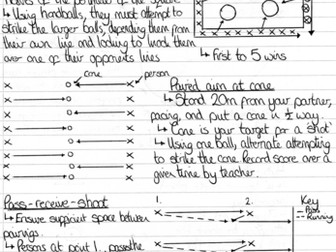 ↳ Using handballs, they must attempt to
strike the larger balls, depending them from
their own line and looking to knock them
over one of their opponents lines
↳ First to 5 wins
cone
person
Paired aim at cone
↳ Stand 20m from your partner,
pacing, and put a cone in ½ way.
↳ 'Cone is your target for a shot'
↳ Using one ball, alternate attempting
to strike the cone. Record score over a
given time by teacher.
Pass-receive-shoot
↳ Ensure sufficient space between
pairings.
↳ Persons at point 1, pass the
1.
2.
Key
Pass
Running